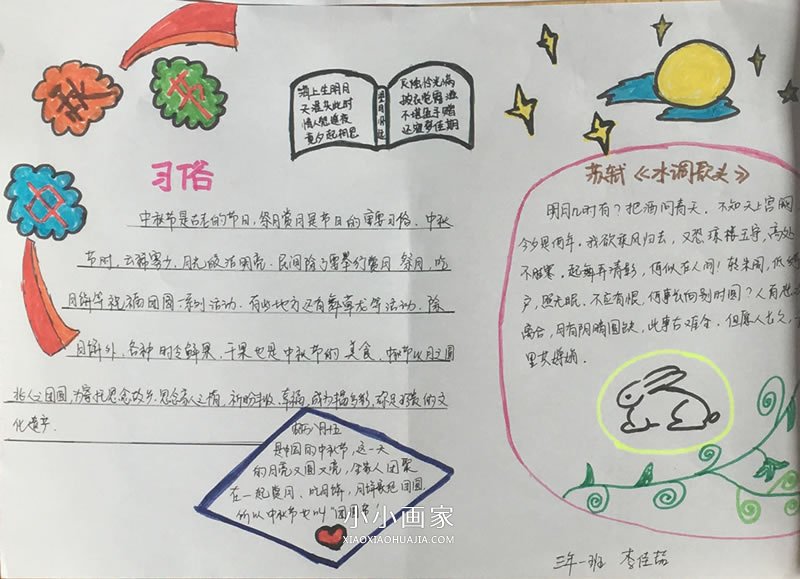 秋
为
中
海上生明月
天涯共此时
情人怨遥夜
竟夕起相思
望月怀远
灭烛怜光满
披衣觉露滋
不堪盈手赠
还寝梦佳期
习俗
中秋节是古老的节日，祭月赏月是节日的重要习俗。中秋
节时，云稀雾少，月光皎洁明亮，民间除了要举行赏月、祭月、吃
月饼等祝福团圆一系列活动，有些地方还有舞草龙等活动。除
月饼外，各种时令鲜果，干果也是中秋节的美食。中秋节以月之圆
兆人之团圆，为寄托思念故乡，思念亲人之情，祈盼丰收、幸福，成为
化遗产。
农历八月十五
是中国的中秋节，这一天
的月亮又圆又亮，全家人团聚
在一起赏月、吃月饼，月饼象征团圆，
所以中秋节也叫“团圆节”
苏轼《水调歌头》
明月几时有？把酒问青天。不知天上宫阙
今夕是何年。我欲乘风归去，又恐琼楼玉宇，高处
不胜寒。起舞弄清影，何似在人间！转朱阁，低绮
户，照无眠。不应有恨，何事长向别时圆？人有悲
离合，月有阴晴圆缺，此事古难全。但愿人长久，千
里共婵娟。
小小画家
XIAOXIAOHUAJIA.COM
三年一班 李佳喆